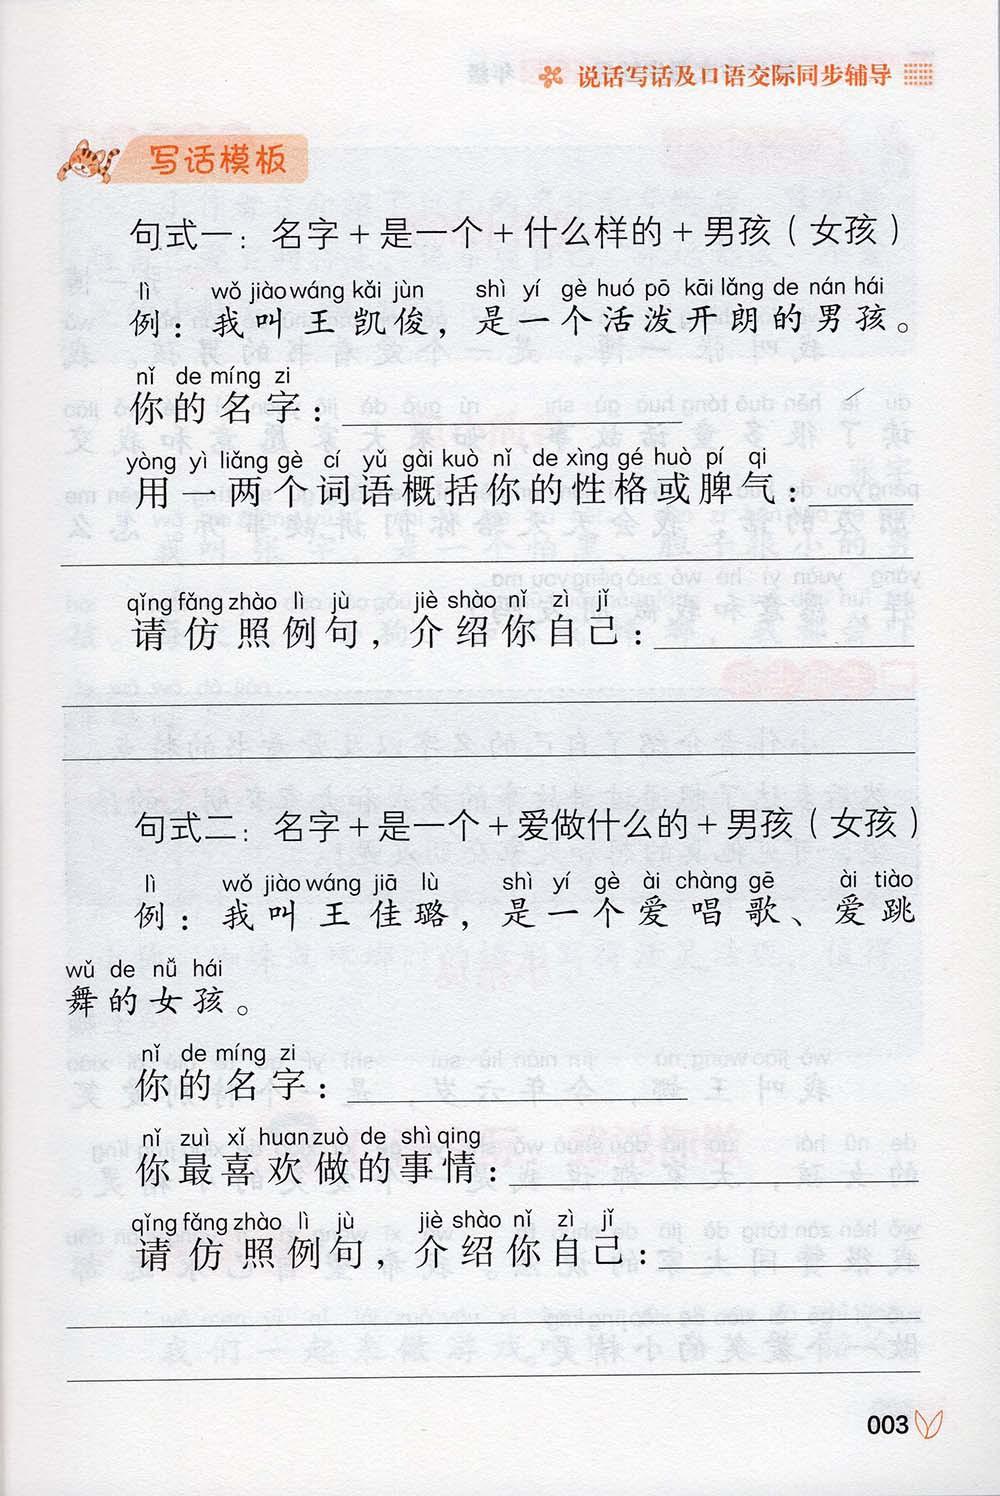 说话写话及口语交际同步辅导
写话模板
句式一：名字+是一个+什么样的+男孩（女孩）
lì wǒ jiào wáng kǎi jùn shì yí gè huó pō kāi lǎng de nán hái
例：我叫王凯俊，是一个活泼开朗的男孩。
nǐ de míng zi
你的名字：
yòng yì liǎng gè cí yǔ gài kuò nǐ de xìng gé huò pí qi
用一两个词语概括你的性格或脾气：
qǐng fǎng zhào lì jù jiè shào nǐ zì jǐ
请仿照例句，介绍你自己：
句式二：名字+是一个+爱做什么的+男孩（女孩）
lì wǒ jiào wáng jiā lù shì yí gè ài chàng gē ài tiào
例：我叫王佳璐，是一个爱唱歌、爱跳
wǔ de nǚ hái
舞的女孩。
nǐ de míng zi
你的名字：
nǐ zuì xǐ huan zuò de shì qing
你最喜欢做的事情：
qǐng fǎng zhào lì jù jiè shào nǐ zì jǐ
请仿照例句，介绍你自己：
003